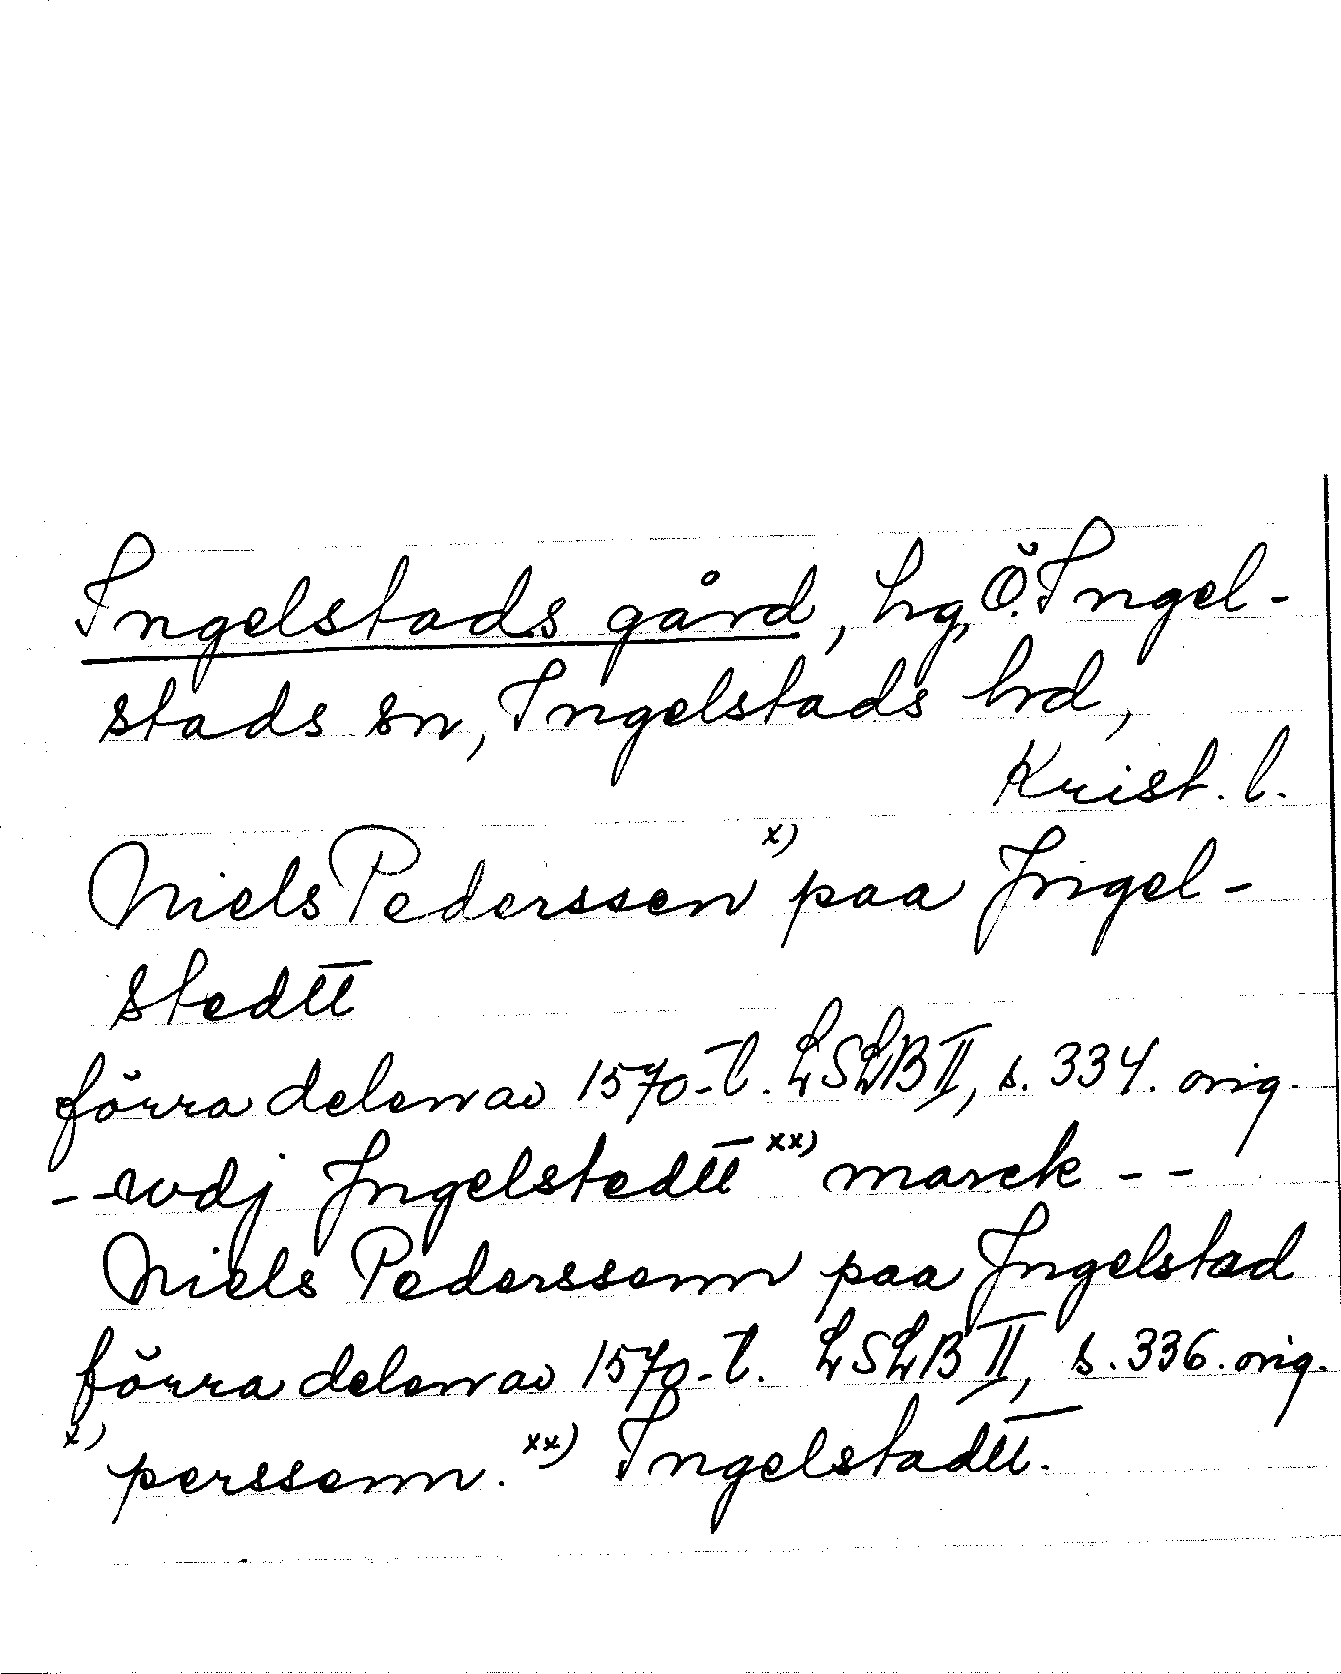 Ingelstads gård, hg, Ö. Ingel-
stads sn, Ingelstads hrd,
Krist. l.
Niels Pederssen x) paa Jngel-
stedtt
förra delen av 1570-t. LSLB II, s. 334. orig.
--wdj Jngelstedtt xx) marck --
Niels Pederssenn paa Jngelstad
förra delen av 1570-t. LSLB II, s. 336. orig.
x) perssenn. xx) Ingelstadtt.